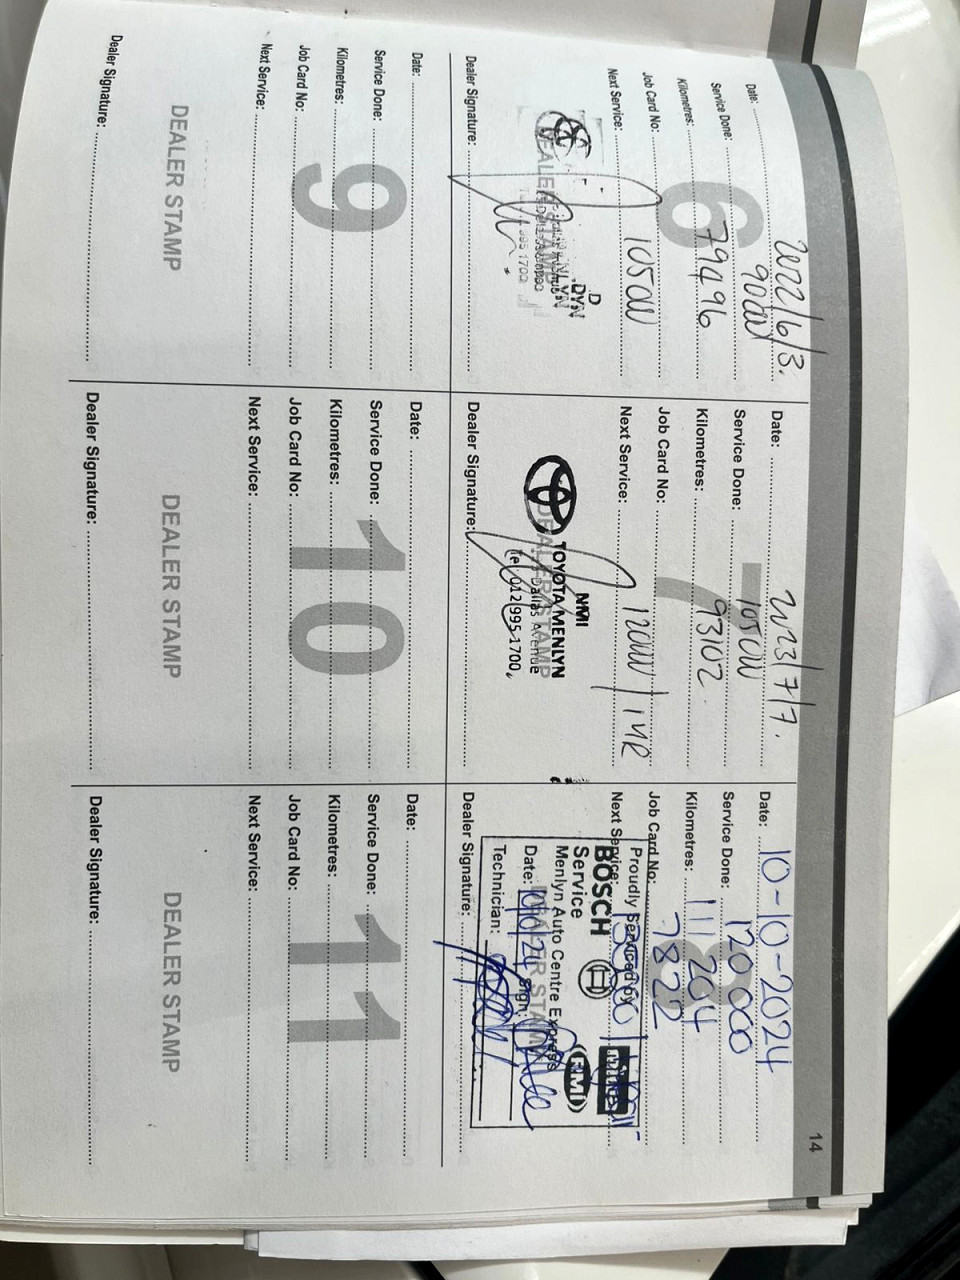 14
6
Date: 2022/6/3.
Service Done: 90000
Kilometres: 79496
Job Card No:
Next Service: 105000
DEALER STAMP
1700
Dealer Signature:
7
Date: 2023/7/7.
Service Done: 105000
Kilometres: 93102
Job Card No:
Next Service: 120000 / 1YR
NMI
TOYOTA MENLYN
Dallas Avenue
Tel: 012 995-1700
DEALER STAMP
Dealer Signature:
8
Date: 10-10-2024
Service Done: 120 000
Kilometres: 111 204
Job Card No: 7822
Next Service:
Proudly Serviced by
BOSCH
Service
RMI
Menlyn Auto Centre Express
Date: 10/10/24 Sign:
Technician:
DEALER STAMP
Dealer Signature:
9
Date:
Service Done:
Kilometres:
Job Card No:
Next Service:
DEALER STAMP
Dealer Signature:
10
Date:
Service Done:
Kilometres:
Job Card No:
Next Service:
DEALER STAMP
Dealer Signature:
11
Date:
Service Done:
Kilometres:
Job Card No:
Next Service:
DEALER STAMP
Dealer Signature: